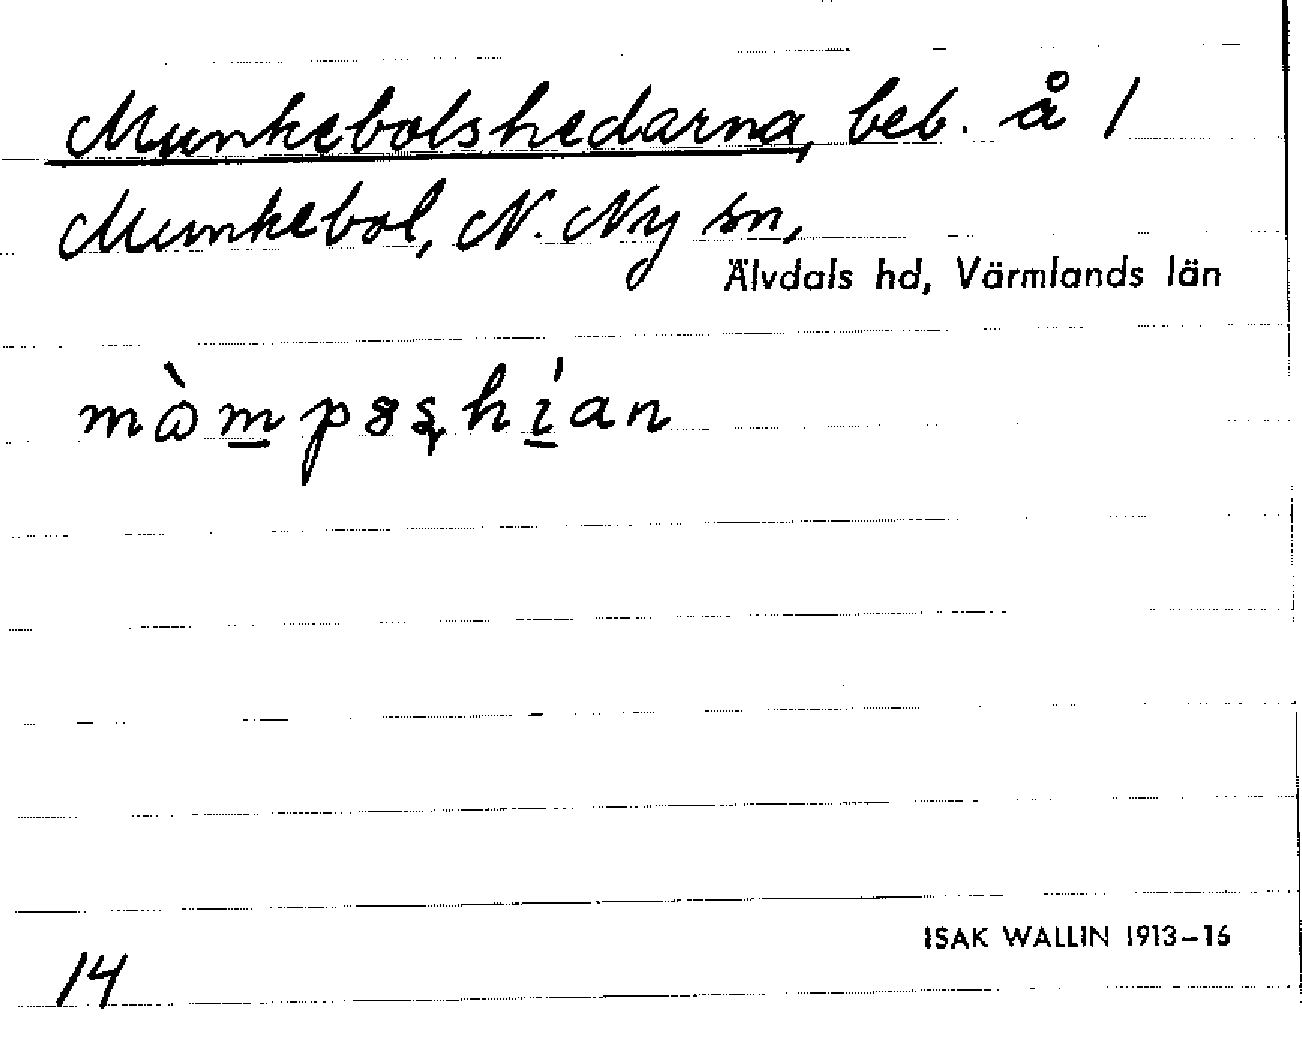 Munkebolshedarna, beb. å 1
Munkebol, N. Ny sn,
Älvdals hd, Värmlands län
ISAK WALLIN 1913–16
14